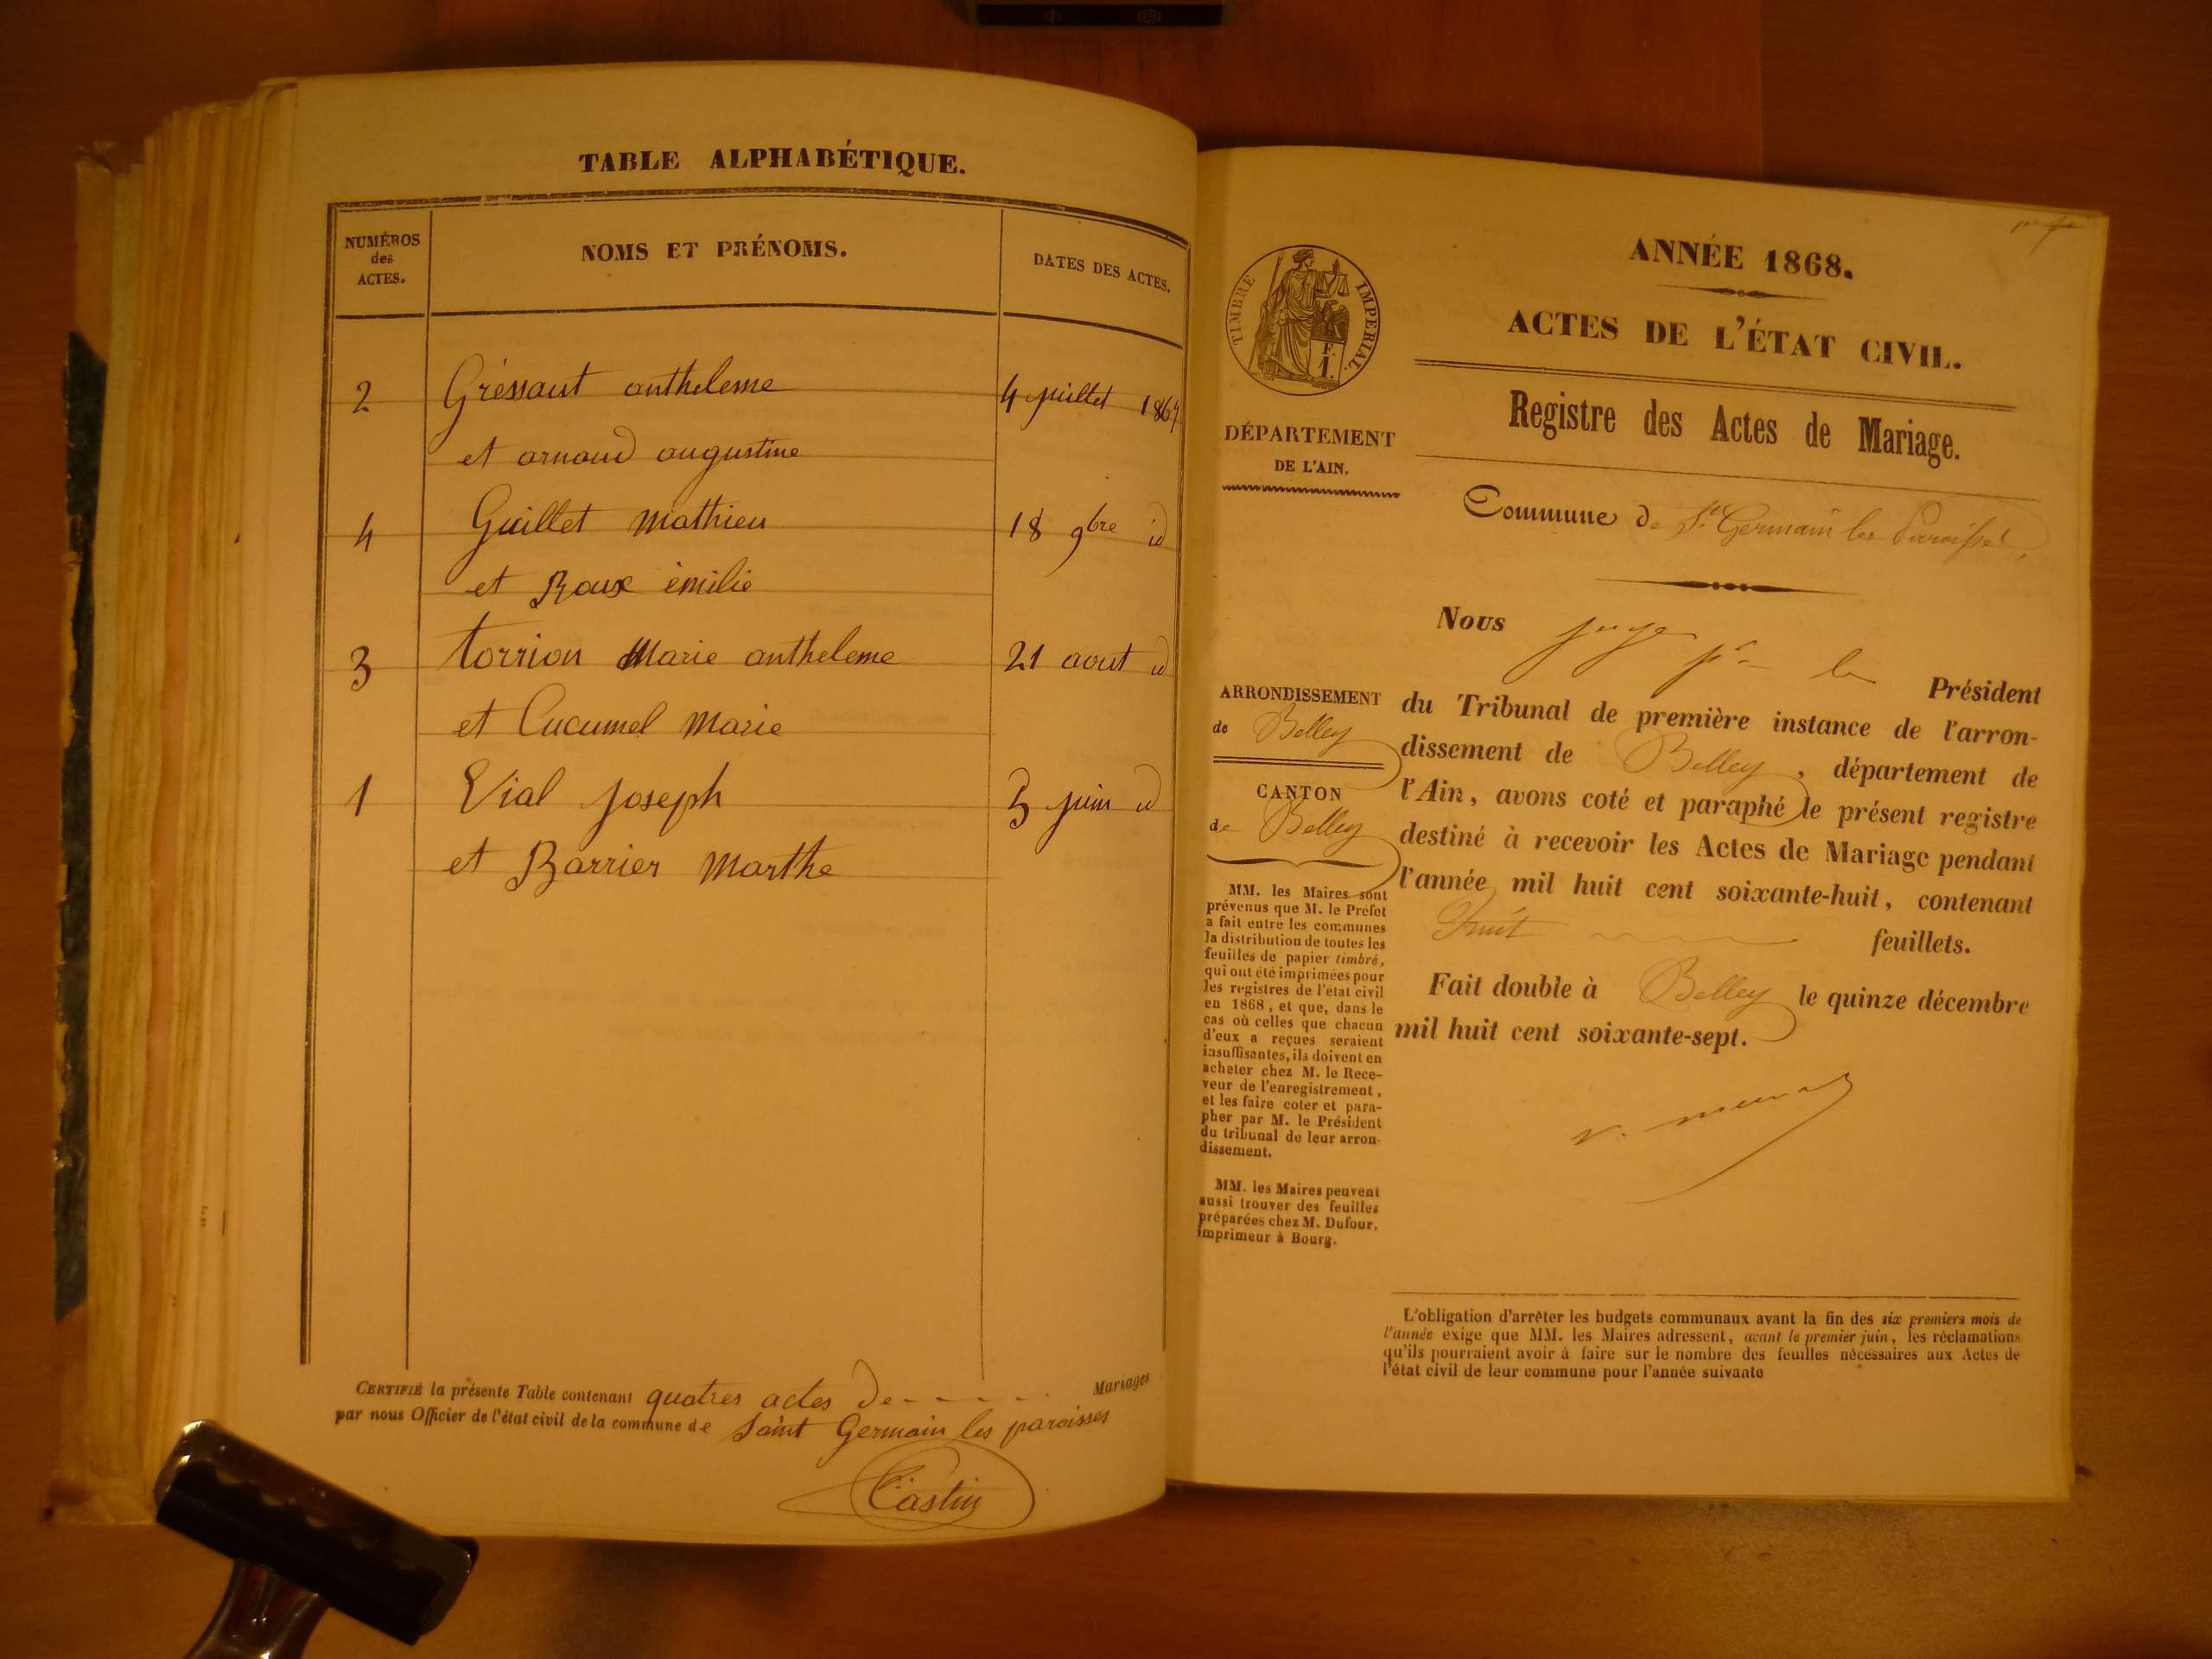 TABLE ALPHABÉTIQUE.
NUMÉROS
des
ACTES.
NOMS ET PRÉNOMS.
DATES DES ACTES.
2 Gressaut antheleme 4 juillet 1867
et arnaud augustine
4 Guillet Mathieu 18 9bre id
et Roux émilie
3 torrion Marie antheleme 21 aout id
et Cucumel Marie
1 Vial Joseph 3 juin id
et Barrier Marthe
CERTIFIÉ la présente Table contenant quatres actes de Mariages
par nous Officier de l'état civil de la commune de Saint Germain les paroisses
Castin
ANNÉE 1868.
ACTES DE L'ÉTAT CIVIL.
Registre des Actes de Mariage.
TIMBRE IMPERIAL.
F.
1.
DÉPARTEMENT
DE L'AIN.
Commune de St Germain les Paroisses
ARRONDISSEMENT
de Belley
CANTON
de Belley
MM. les Maires sont
prévenus que M. le Préfet
a fait entre les communes
la distribution de toutes les
feuilles de papier timbré,
qui ont été imprimées pour
les registres de l'état civil
en 1868, et que, dans le
cas où celles que chacun
d'eux a reçues seraient
insuffisantes, ils doivent en
acheter chez M. le Rece-
veur de l'enregistrement,
et les faire coter et para-
pher par M. le Président
du tribunal de leur arron-
dissement.
MM. les Maires peuvent
aussi trouver des feuilles
préparées chez M. Dufour,
imprimeur à Bourg.
Nous juge pr le Président
du Tribunal de première instance de l'arron-
dissement de Belley, département de
l'Ain, avons coté et paraphé le présent registre
destiné à recevoir les Actes de Mariage pendant
l'année mil huit cent soixante-huit, contenant
huit feuillets.
Fait double à Belley le quinze décembre
mil huit cent soixante-sept.
L'obligation d'arrêter les budgets communaux avant la fin des six premiers mois de
l'année exige que MM. les Maires adressent, avant le premier juin, les réclamations
qu'ils pourraient avoir à faire sur le nombre des feuilles nécessaires aux Actes de
l'état civil de leur commune pour l'année suivante